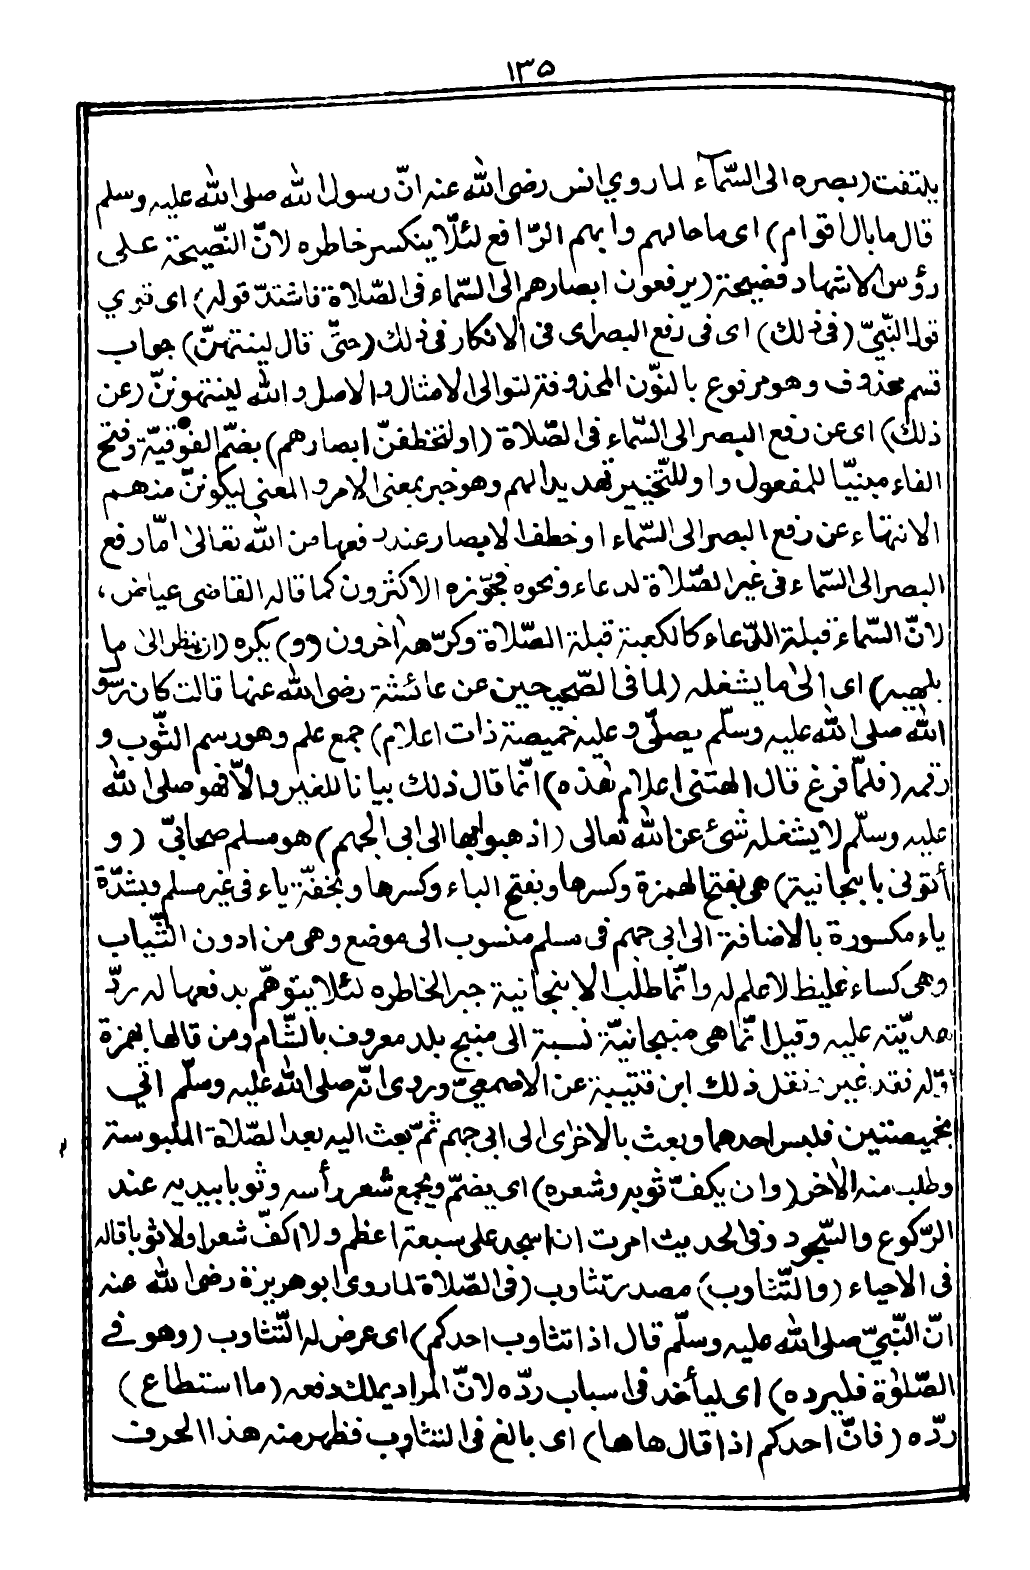 ١٣٥
يلتفت (بصره الى السّمآء لما روي انس رضى الله عنه انّ رسول الله صلى الله عليه وسلم
قال ما بال اقوام) اى ما حالهم وابهم الرّافع لئلّا ينكسر خاطره لانّ النّصيحة على
رؤس الاشهاد فضيحة (يرفعون ابصارهم الى السّماء فى الصّلاة فاشتدّ قوله) اى قوي
قول النّبيّ (فى ذلك) اى فى رفع البصر اى فى الانكار فى ذلك (حتّى قال لينتهنّ) جواب
قسم محذوف وهو مرفوع بالنّون المحذوفة لتوالى الامثال والاصل والله لينتهوننّ (عن
ذلك) اى عن رفع البصر الى السّماء فى الصّلاة (او لتخطفنّ ابصارهم) بضمّ الفوقيّة وفتح
الفاء مبنيّا للمفعول واو للتّخيير تهديدا لهم وهو خبر بمعنى الامر والمعنى ليكوننّ منهم
الانتهاء عن رفع البصر الى السّماء او خطف الابصار عند رفعها من الله تعالى امّا رفع
البصر الى السّماء فى غير الصّلاة لدعاء ونحوه فجوّزه الاكثرون كما قاله القاضى عياض،
لانّ السّماء قبلة الدّعاء كالكعبة قبلة الصّلاة وكرّهه اخرون (و) يكره (ان ينظر الى ما
يلهيه) اى الى ما يشغله (لما فى الصّحيحين عن عائشة رضى الله عنها قالت كان رسو
الله صلى الله عليه وسلّم يصلّى وعليه خميصة ذات اعلام) جمع علم وهو رسم الثّوب و
رقمه (فلمّا فرغ قال الهتنى اعلام هذه) انّما قال ذلك بيانا للغير والّا فهو صلى الله
عليه وسلّم لا يشغله شئ عن الله تعالى (اذهبوا بها الى ابى الجهم) هو مسلم صحابيّ (و
أتونى بابنجانية) هى بفتح الهمزة وكسرها وبفتح الباء وكسرها وبخفّة ياء فى غير مسلم وبشدّة
ياء مكسورة بالاضافة الى ابى جهم فى مسلم منسوب الى موضع وهى من ادون الثّياب
وهى كساء غليظ لا علم له وانّما طلب الابنجانية جبرا لخاطره لئلا يتوهّم بدفعها له ردّ
هديّته عليه وقيل انّما هى منبجانيّة نسبة الى منبج بلد معروف بالشّام ومن قالها بهمزة
اوّله فقد غير نقل ذلك ابن قتيبة عن الاصمعيّ وروى انّه صلى الله عليه وسلّم اتي
بخميصتين فلبس احدهما وبعث بالاخرى الى ابى جهم ثمّ بعث اليه بعد الصّلاة الملبوسة
وطلب منه الاخر (وان يكفّ ثوبه وشعره) اى يضمّ ويجمع شعر رأسه وثوبا بيديه عند
الرّكوع والسّجود وفى الحديث امرت ان اسجد على سبعة اعظم ولا اكفّ شعرا ولا ثوبا قاله
فى الاحياء (والتّثاوب) مصدر تثاوب (فى الصّلاة لما روى ابو هريرة رضى الله عنه
انّ النّبيّ صلى الله عليه وسلّم قال اذا تثاوب احدكم) اى عرض له التّثاوب (وهو فى
الصّلوة فليرده) اى ليأخذ فى اسباب ردّه لانّ المراد يملك دفعه (ما استطاع)
ردّه (فانّ احدكم اذا قال هاها) اى بالغ فى التثاوب فظهر منه هذا الحرف